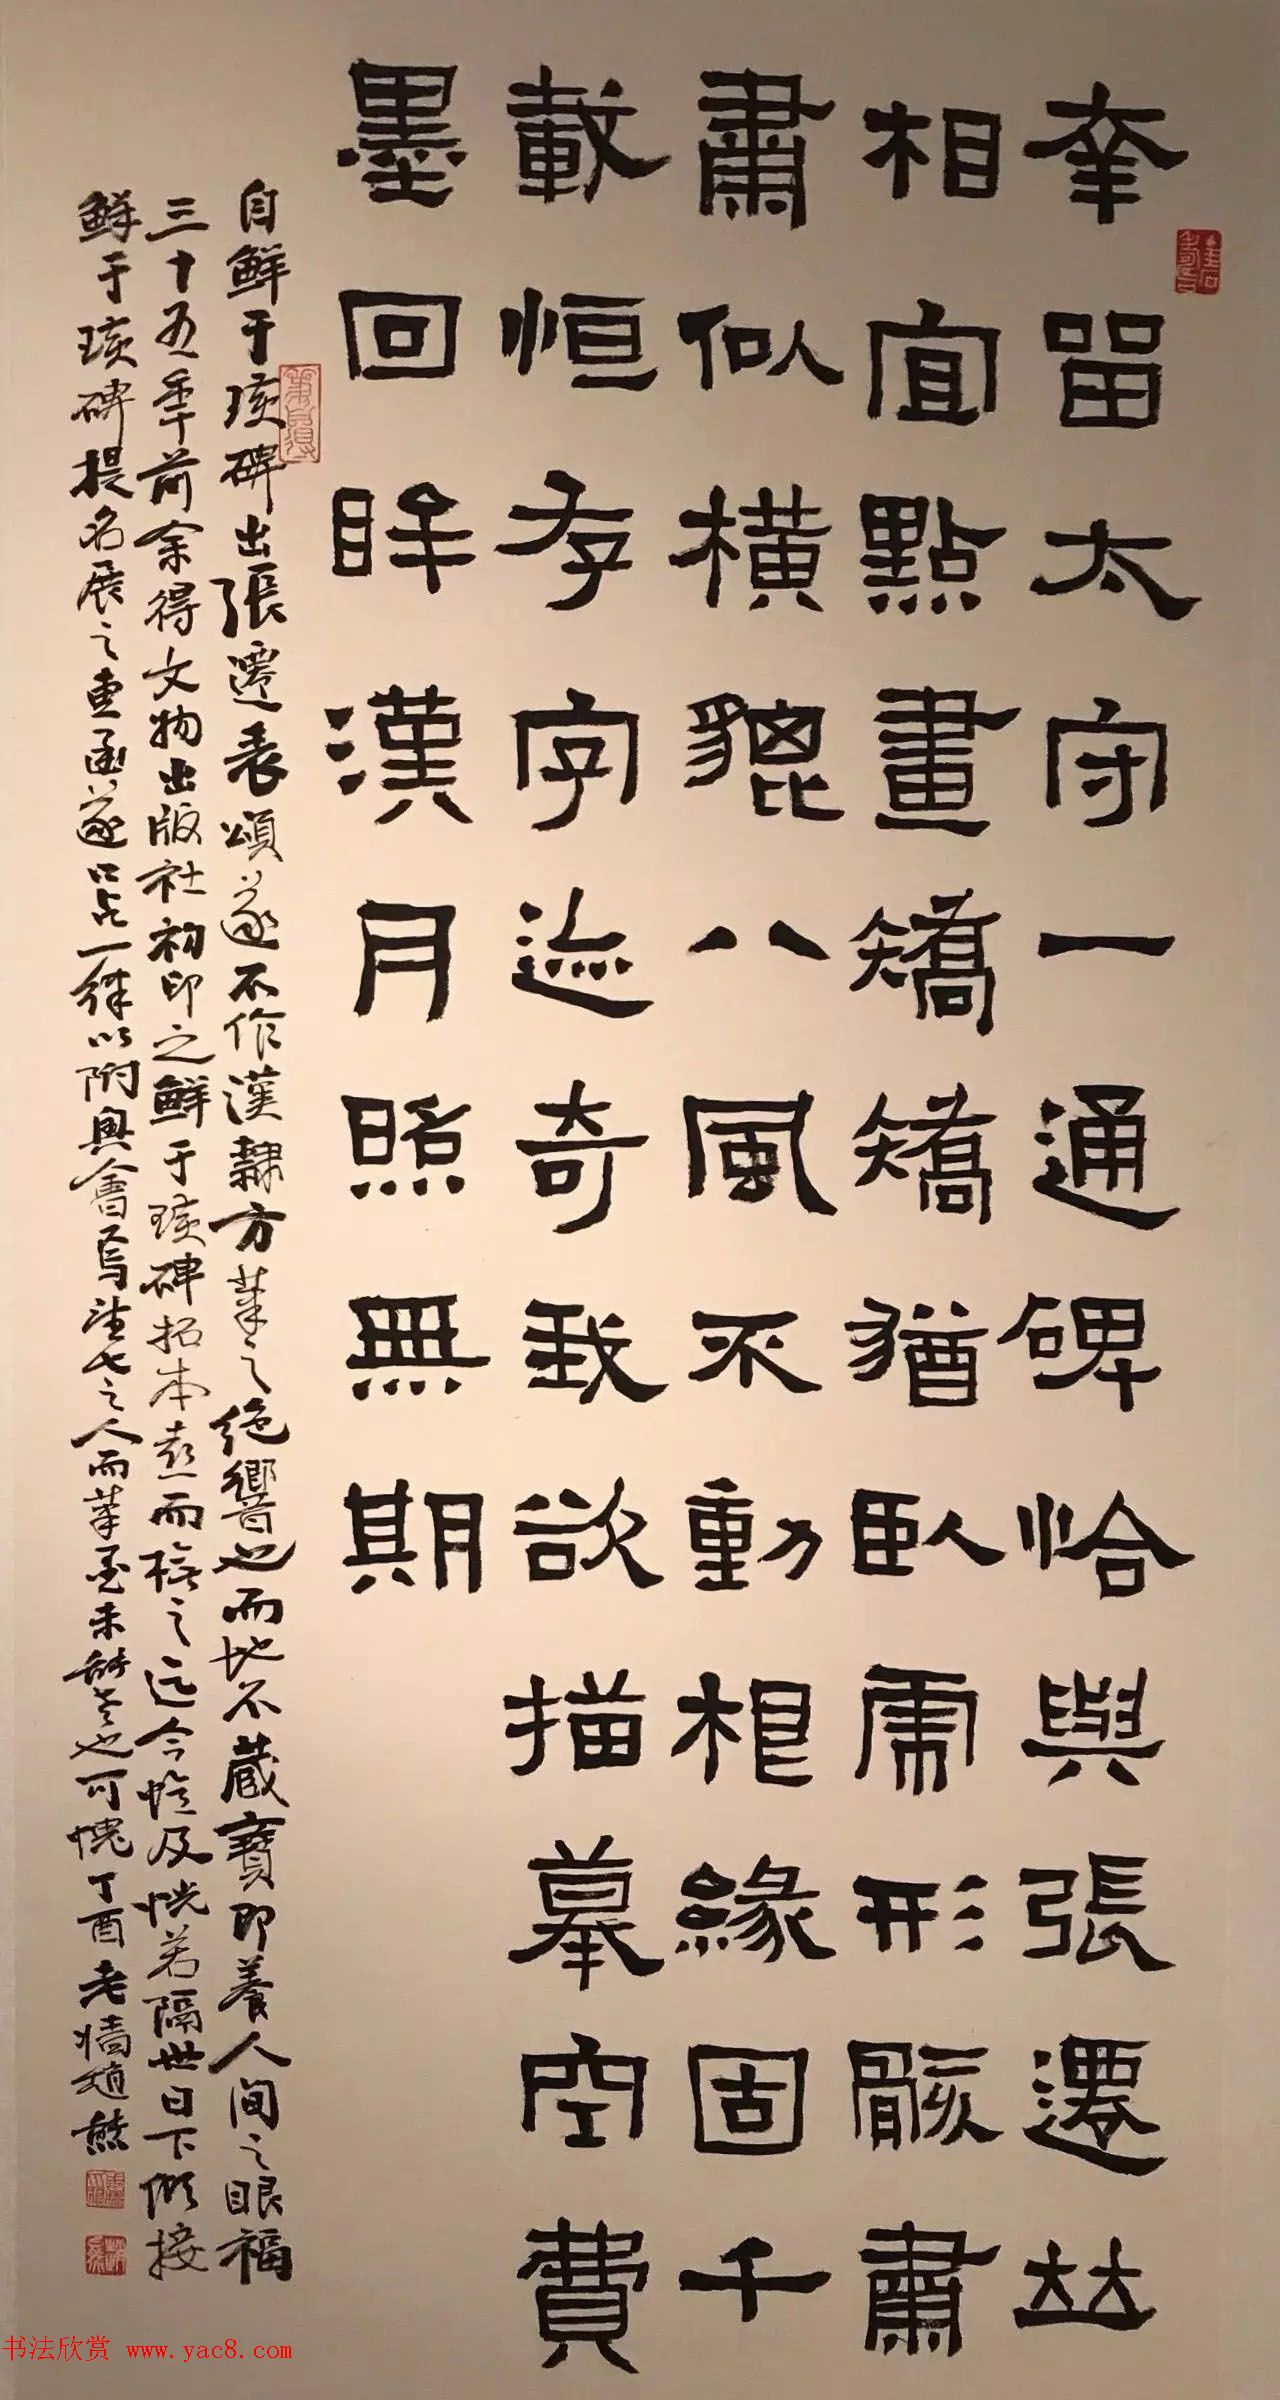 幸留太守一通碑恰與張遷竝
相宜點畫矯矯猶臥虎形骸肅
肅似橫貔八風不動根緣固千
載恒存字迹奇我欲描摹空費
墨回眸漢月照無期
自鮮于璜碑出張遷表頌遂不作漢隸方筆之絕響也而地不藏寶即養人間之眼福
三十五年前余得文物出版社初印之鮮于璜碑拓本喜而臨之迄今憶及恍若隔世日下似接
鮮于璜碑提名展之重函遂占一律以附興會焉 之人而筆墨未 也可愧丁酉老牆趙熊
书法欣赏 www.yac8.com